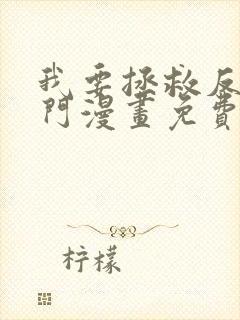 我要拯救反
門漫畫免費
柠檬